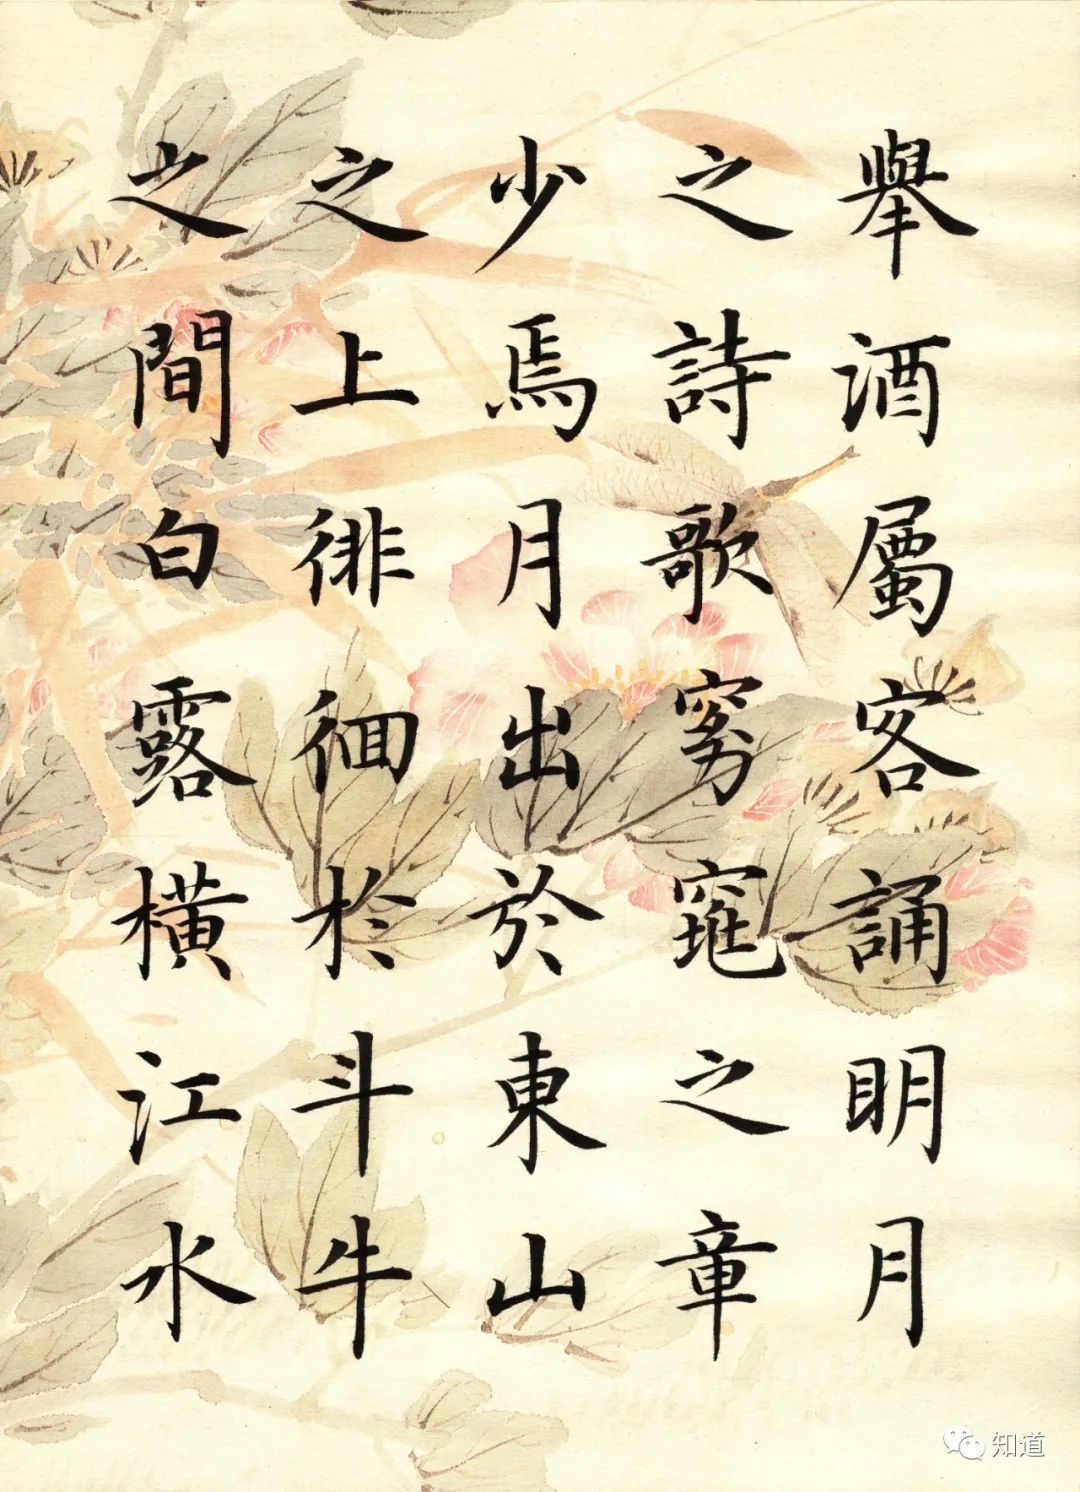 舉酒屬客誦明月
之詩歌窈窕之章
少焉月出於東山
之上徘徊於斗牛
之間白露橫江水
知道